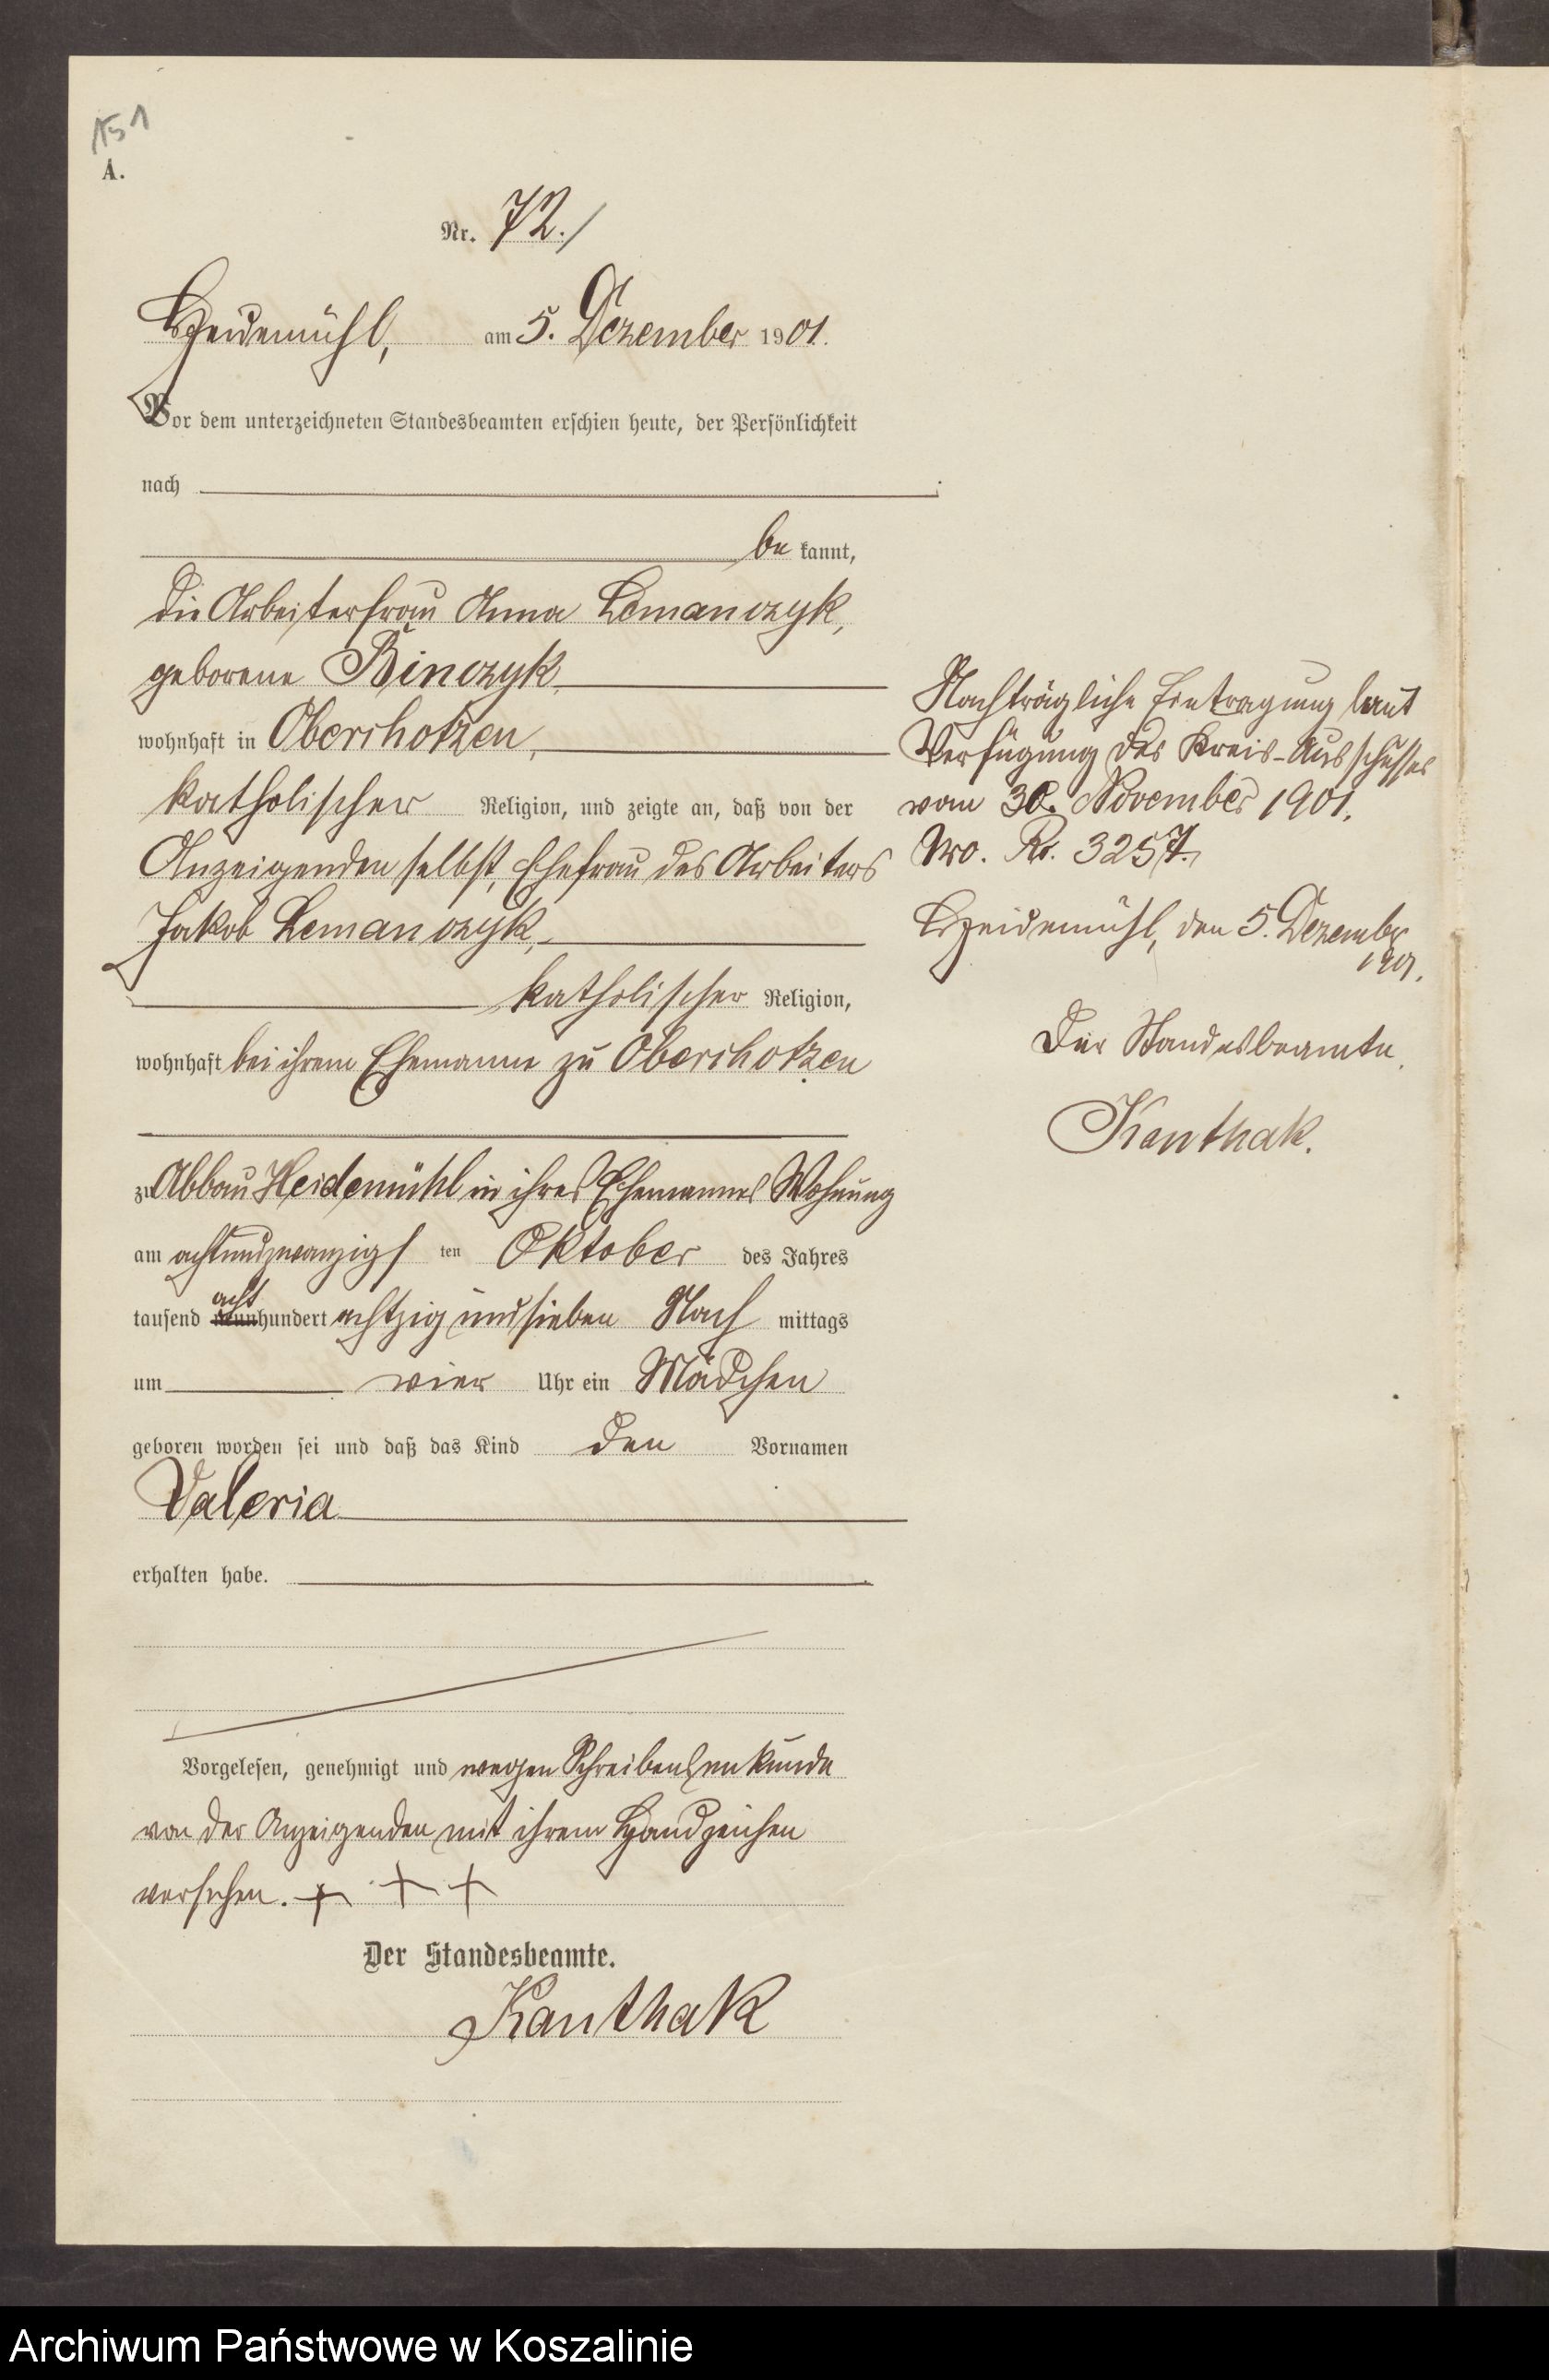 151
A.
Nr. 72./
Heidemühl, am 5. Dezember 1901.
Vor dem unterzeichneten Standesbeamten erschien heute, der Persönlichkeit
nach
be kannt,
die Arbeiterfrau Anna Lemanczyk,
geborene Binczyk,
wohnhaft in Oberschotzen,
katholischer Religion, und zeigte an, daß von der
Anzeigenden selbst, Ehefrau des Arbeiters
Jakob Lemanczyk,
katholischer Religion,
wohnhaft bei ihrem Ehemanne zu Oberschotzen
zu Abbau Heidemühl in ihres Ehemannes Wohnung
am achtundzwanzigs ten Oktober des Jahres
acht
tausend neunhundert achtzig und sieben Nach mittags
um vier Uhr ein Mädchen
geboren worden sei und daß das Kind den Vornamen
Valeria
erhalten habe.
Vorgelesen, genehmigt und wegen Schreibensunkunde
von der Anzeigenden mit ihrem Handzeichen
versehen. + + +
Der Standesbeamte.
Kanthak
Nachträgliche Eintragung laut
Verfügung des Kreis-Ausschusses
vom 30. November 1901.
No. 3257.
Heidemühl, den 5. Dezember
1901.
Der Standesbeamte.
Kanthak.
Archiwum Państwowe w Koszalinie